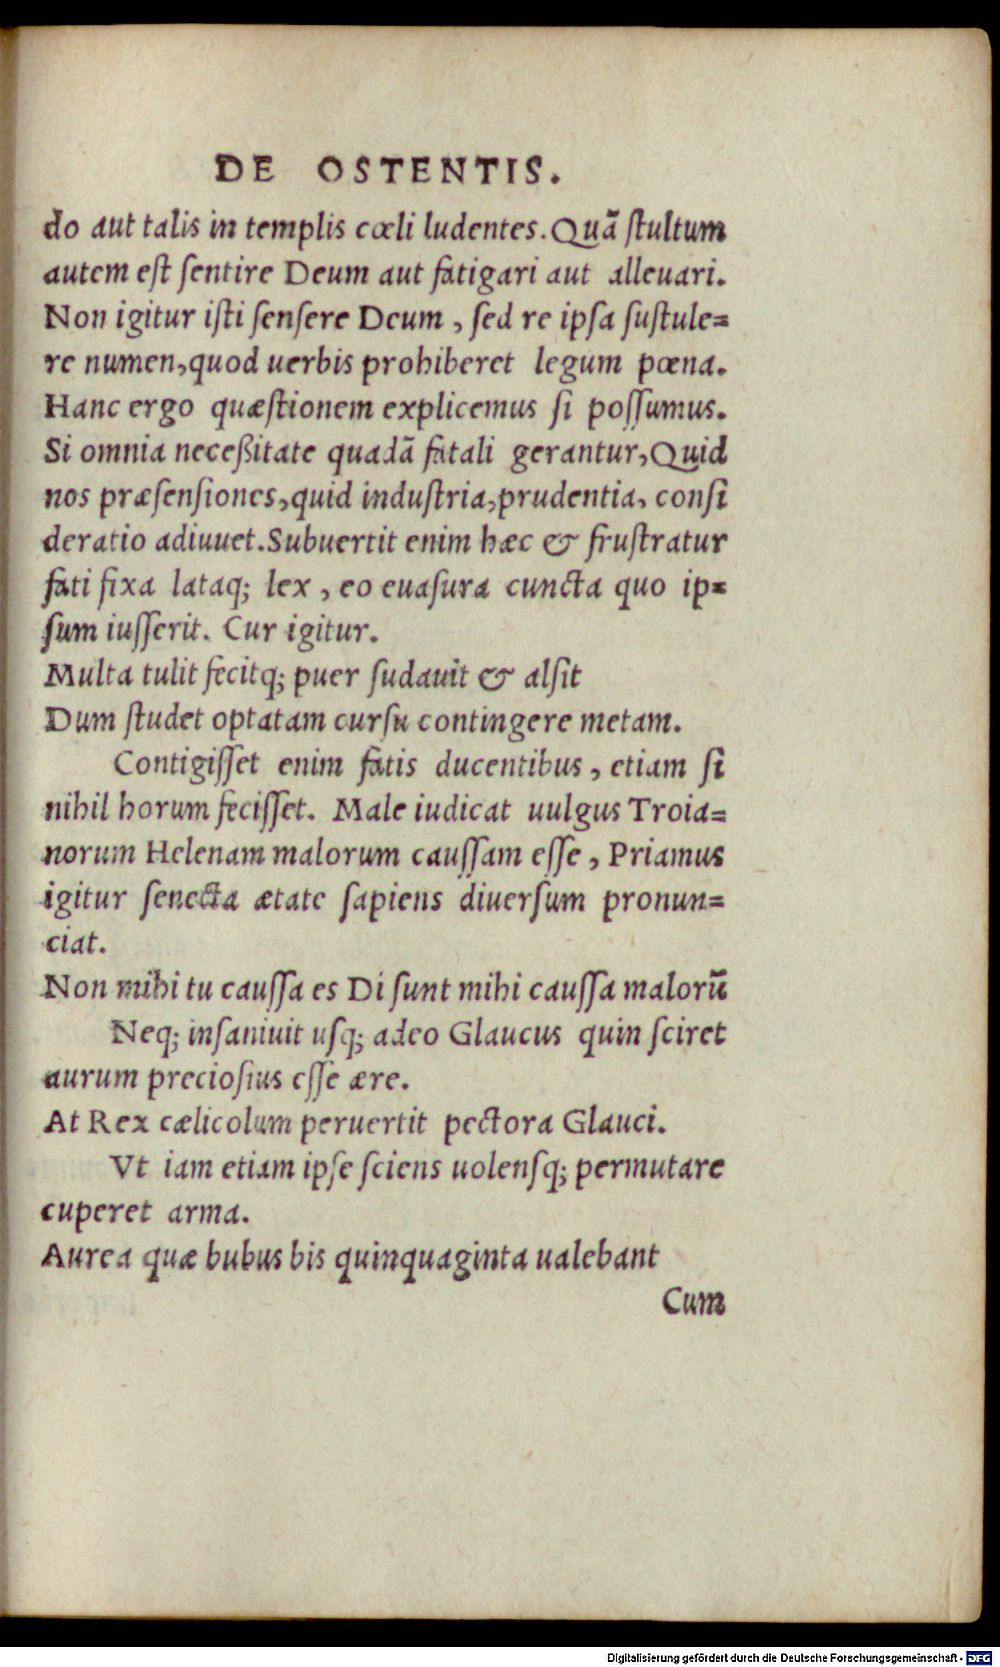 DE OSTENTIS.
do aut talis in templis cœli ludentes. Quã ſtultum
autem eſt ſentire Deum aut fatigari aut alleuari.
Non igitur iſti ſenſere Deum, ſed re ipſa ſuſtule=
re numen, quod uerbis prohiberet legum pœna.
Hanc ergo quæſtionem explicemus ſi poſſumus.
Si omnia neceßitate quadã fatali gerantur, Quid
nos præſenſiones, quid induſtria, prudentia, conſi
deratio adiuuet. Subuertit enim hæc & fruſtratur
fati fixa lataq; lex, eo euaſura cuncta quo ip=
ſum iuſſerit. Cur igitur.
Multa tulit fecitq; puer ſudauit & alſit
Dum ſtudet optatam curſu contingere metam.
Contigiſſet enim fatis ducentibus, etiam ſi
nihil horum feciſſet. Male iudicat uulgus Troia=
norum Helenam malorum cauſſam eſſe, Priamus
igitur ſenecta ætate ſapiens diuerſum pronun=
ciat.
Non mihi tu cauſſa es Di ſunt mihi cauſſa malorũ
Neq; inſaniuit uſq; adeo Glaucus quin ſciret
aurum precioſius eſſe ære.
At Rex cælicolum peruertit pectora Glauci.
Vt iam etiam ipſe ſciens uolenſq; permutare
cuperet arma.
Aurea quæ bubus bis quinquaginta ualebant
Cum
Digitalisierung gefördert durch die Deutsche Forschungsgemeinschaft - DFG